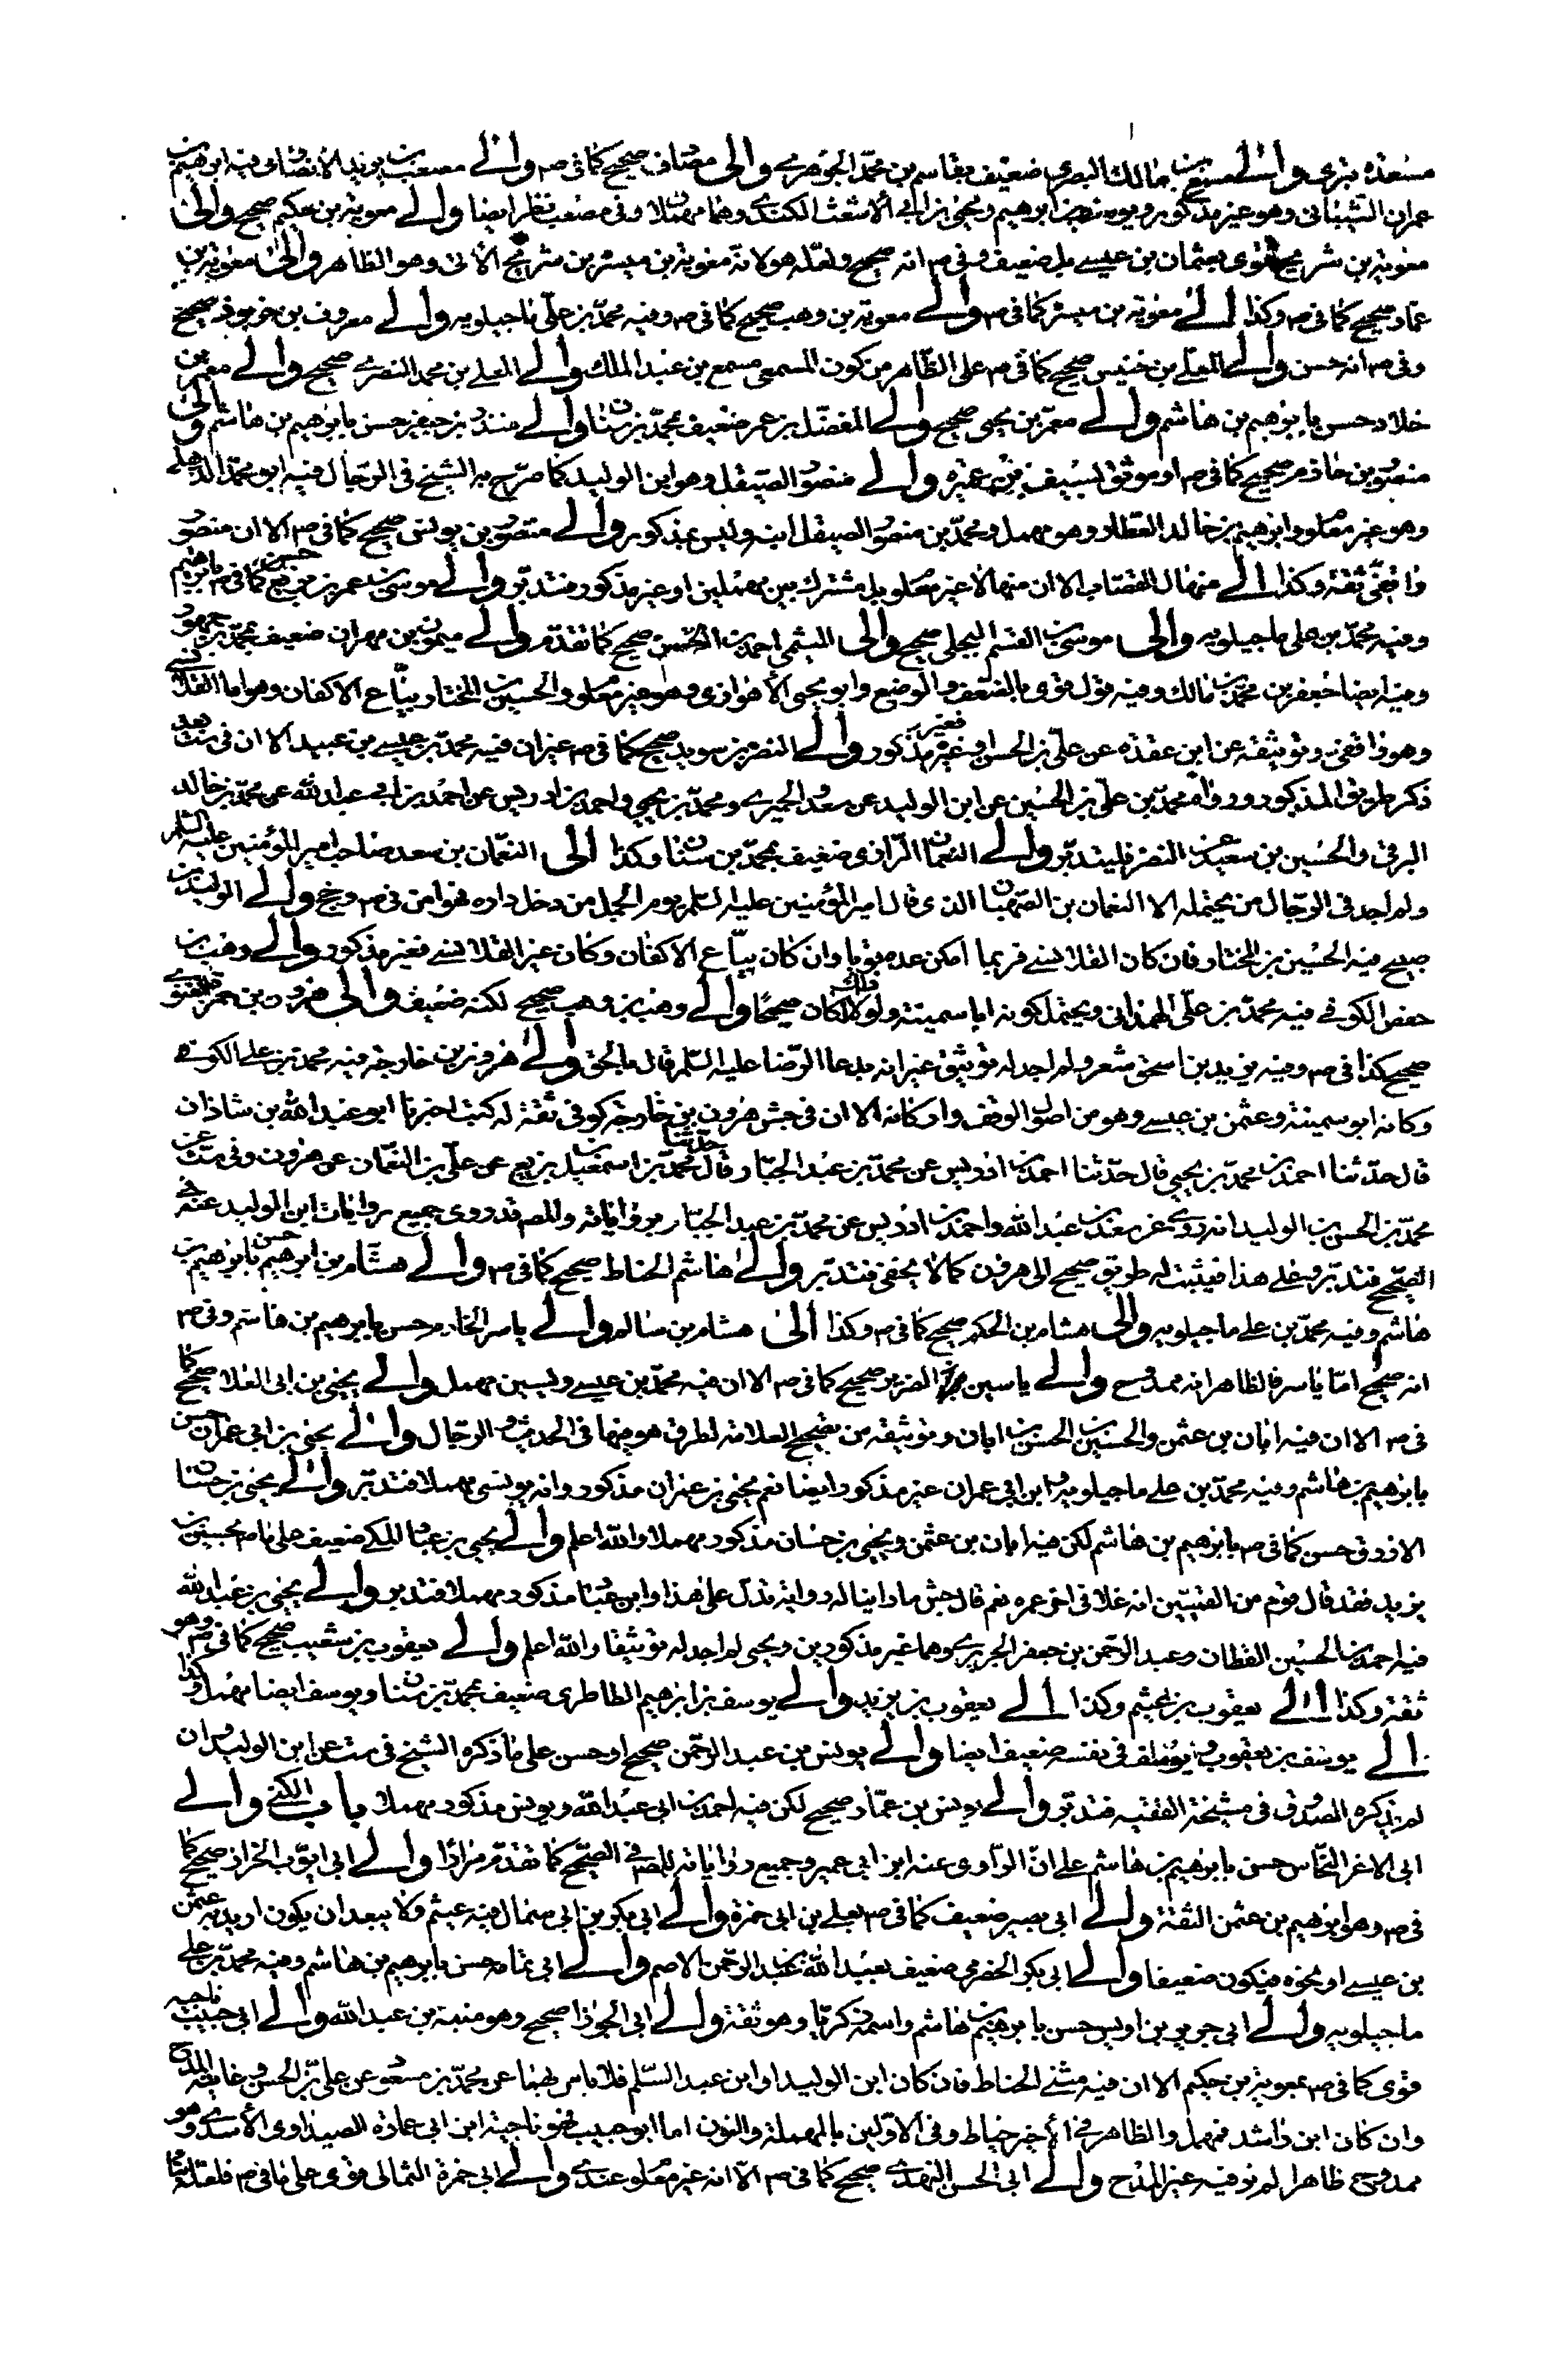 مسعدة بتری والے مسمع بن مالك البصری ضعیف بقاسم بن محمد الجوهری والی مصادف صحیح كما فی صه والے مصعب بن یزید الانصاری فیه ابرهیم بن
عمران الشیبانی وهو غیر مذكور ویونس بن ابرهیم ویحیی بن ابی الاشعث الكندی وهما مهملان وفی مصعب نظر ایضا والے معویة بن حكیم صحیح والی
معویة بن شریح قوی بعثمان بن عیسے بل ضعیف وفی صه انه صحیح ولعله هو لانه معویة بن میسرة بن شریح الاتی وهو الظاهر والی معویة بن
عمار صحیح كما فی صه وكذا الے معویة بن میسرة كما فی صه والے معویة بن وهب صحیح كما فی صه وفیه محمد بن علی ماجیلویه والے معروف بن خربوذ صحیح
وفی صه انه حسن والے المعلے بن خنیس صحیح كما فی صه علی الظاهر من كون المسمعی مسمع بن عبد الملك والے المعلے بن محمد البصرے صحیح والے معمر بن
خلاد حسن بابرهیم بن هاشم والے معمر بن یحیی صحیح والے المفضل بن عمر ضعیف بمحمد بن سنان والے منذر بن جیفر حسن بابرهیم بن هاشم والی
منصور بن حازم صحیح كما فی صه او موثق لسیف بن عمیرة والے منصور الصیقل وهو ابن الولید كما صرح به الشیخ فی الرجال فیه ابو محمد الذهلے
وهو غیر معلوم وابرهیم بن خالد العطار وهو مهمل ومحمد بن منصور الصیقل ابنه ولیس بمذكور والے منصور بن یونس صحیح كما فی صه الا ان منصور
واقفی ثقة وكذا الے منهال القصاب الا ان منهالا غیر معلوم بل مشترك بین مهملین او غیر مذكور فتدبر والے موسی بن عمر بن بزیع حسن كما فی صه بابرهیم
وفیه محمد بن علی ماجیلویه والی موسی بن القسم البجلی صحیح والی المیثمی احمد بن الحسن صحیح كما تقدم والے میمون بن مهران ضعیف بمحمد بن جمهور
وفیه ایضا جعفر بن محمد بن مالك وفیه قول قوی بالضعف والوضع وابو یحیی الاهوازی وهو غیر معلوم والحسین بن المختار بیاع الاكفان وهو اما القلانسے
وهو واقفی وتوثیقه عن ابن عقدة عن علی بن الحسن او غیره فغیر مذكور والے النضر بن سوید صحیح كما فی صه غیر ان فیه محمد بن عیسے بن عبید الا ان فی ست بعد
ذكر طریق المذكور ورواه محمد بن علی بن الحسین عن ابن الولید عن سعد والحمیرے ومحمد بن یحیی واحمد بن ادریس عن احمد بن ابے عبد الله عن محمد بن خالد
البرقی والحسین بن سعید عن النضر فلیتدبر والے النعمان الرازی ضعیف بمحمد بن سنان وكذا الی النعمان بن سعد صاحب امیر المؤمنین علیه السلم
ولم اجد فی الرجال من یحتمله الا النعمان بن الصهبان الذی قال امیر المؤمنین علیه السلم یوم الجمل من دخل داره فهو امن فی صه وجخ والے الولید بن
صبیح فیه الحسین بن المختار فان كان القلانسے فربما امكن عده موثقا وان كان بیاع الاكفان وكان غیر القلانسے فغیر مذكور والے وهب بن
حفص الكوفے فیه محمد بن علی الهمدانی ویحتمل كونه ابا سمینة ولولا ذلك لكان صحیحا والے وهب بن وهب صحیح لكنه ضعیف والی هرون بن حمزة الغنوے
صحیح كذا فی صه وفیه یزید بن اسحق شعر ولم اجد له توثیق غیر انه بدعاء الرضا علیه السلم قال بالحق والے هرون بن خارجة فیه محمد بن علے الكوفے
وكانه ابو سمینة وعثمن بن عیسے وهو من اصول الوقف واركانه الا ان فی جش هرون بن خارجة كوفی ثقة له كتب اخبرنا ابو عبد الله بن شاذان
قال حدثنا احمد بن محمد بن یحیی قال حدثنا احمد بن ادریس عن محمد بن عبد الجبار قال حدثنا محمد بن اسمعیل بن بزیع عن علی بن النعمان عن هرون وفی ست عن
محمد بن الحسن بن الولید انه روے عن سعد بن عبد الله واحمد بن ادریس عن محمد بن عبد الجبار بروایاته والمصه قد روی جمیع روایات ابن الولید عنه فے
الصحیح فتدبر فعلے هذا فیثبت له طریق صحیح الی هرون كما لا یخفی فتدبر والے هاشم الحناط صحیح كما فی صه والے هشام بن ابرهیم حسن بابرهیم بن
هاشم وفیه محمد بن علے ماجیلویه والی هشام بن الحكم صحیح كما فی صه وكذا الی هشام بن سالم والے یاسر الخادم حسن بابرهیم بن هاشم وفی صه
انه صحیح اما یاسر فالظاهر انه ممدوح والے یاسین الضریر صحیح كما فی صه الا ان فیه محمد بن عیسے ولیسین مهمل والے یحیی بن ابی العلا صحیح كما
فی صه الا ان فیه ابان بن عثمن والحسین بن الحسن بن ابان وتوثیقه من تصحیح العلامة لطرق هو فیها فی الحدیث والرجال والے یحیی بن ابی عمران حسن
بابرهیم بن هاشم وفیه محمد بن علے ماجیلویه وابن ابی عمران غیر مذكور ایضا نعم یحیی بن عمران مذكور وانه یونسی مهملا فتدبر والے یحیی بن حسان
الازرق حسن كما فی صه بابرهیم بن هاشم لكن فیه ابان بن عثمن ویحیی بن حسان مذكور مهملا والله اعلم والے یحیی بن عباد المكے ضعیف علی ما صه بحسین بن
یزید فقد قال قوم من القمیین انه غلا فی اخر عمره نعم قال جش ما راینا له روایة تدل علی هذا وابن عباد مذكور مهملا فتدبر والے یحیی بن عبد الله
فیه احمد بن الحسین القطان وعبد الرحمن بن جعفر الجریرے وهما غیر مذكورین ویحیی لم اجد له توثیقا والله اعلم والے یعقوب بن شعیب صحیح كما فی صه وهو
ثقة وكذا الے یعقوب بن عیثم وكذا الے یعقوب بن یزید والے یوسف بن ابرهیم الطاطری ضعیف بمحمد بن سنان ویوسف ایضا مهمل وكذا
الے یوسف بن یعقوب ویوسف فی نفسه ضعیف ایضا والے یونس بن عبد الرحمن صحیح او حسن علی ما ذكره الشیخ فی ست عن ابن الولید وان
لم یذكره الصدوق فی مشیخة الفقیه فتدبر والے یونس بن عمار صحیح لكن فیه احمد بن ابی عبد الله ویونس مذكور مهملا باب الكنے والے
ابی الاغر النحاس حسن بابرهیم بن هاشم علے ان الراوی عنه ابن ابی عمیر وجمیع روایاته للمصه فے الصحیح كما تقدم مرارا والے ابی ایوب الخزاز صحیح كما
فی صه وهو ابرهیم بن عثمن الثقة والے ابی بصیر ضعیف كما فی صه بعلے بن ابی حمزة والے ابی بكر بن ابی سمال فیه عیثم ولا یبعد ان یكون ارید به عثمن
بن عیسے او نحوه فیكون ضعیفا والے ابی بكر الحضرمی ضعیف بعبد الله بن عبد الرحمن الاصم والے ابی ثمامة حسن بابرهیم بن هاشم وفیه محمد بن علے
ماجیلویه والے ابی جریر بن ادریس حسن بابرهیم بن هاشم واسمه زكریا وهو ثقة والے ابی الجوزا صحیح وهو منبه بن عبد الله والے ابی حبیب ناجیه
قوی كما فی صه بمعویة بن حكیم الا ان فیه مثنے الحناط فان كان ابن الولید او ابن عبد السلام فلا باس بهما عن محمد بن مسعود عن علی بن الحسن وغایته المدح
وان كان ابن راشد فمهمل والظاهر فی الأخیر خیاط وفی الاولین بالمهملة والنون اما ابو حبیب فهو ناجیة ابن ابی عمارة الصیداوی الأسدے وهو
ممدوح ظاهرا لم نوفیه غیر المدح والے ابی الحسن النهدے صحیح كما فی صه الا انه غیر معلوم عندے والے ابی حمزة الثمالی قوی علی ما فی صه فلعله